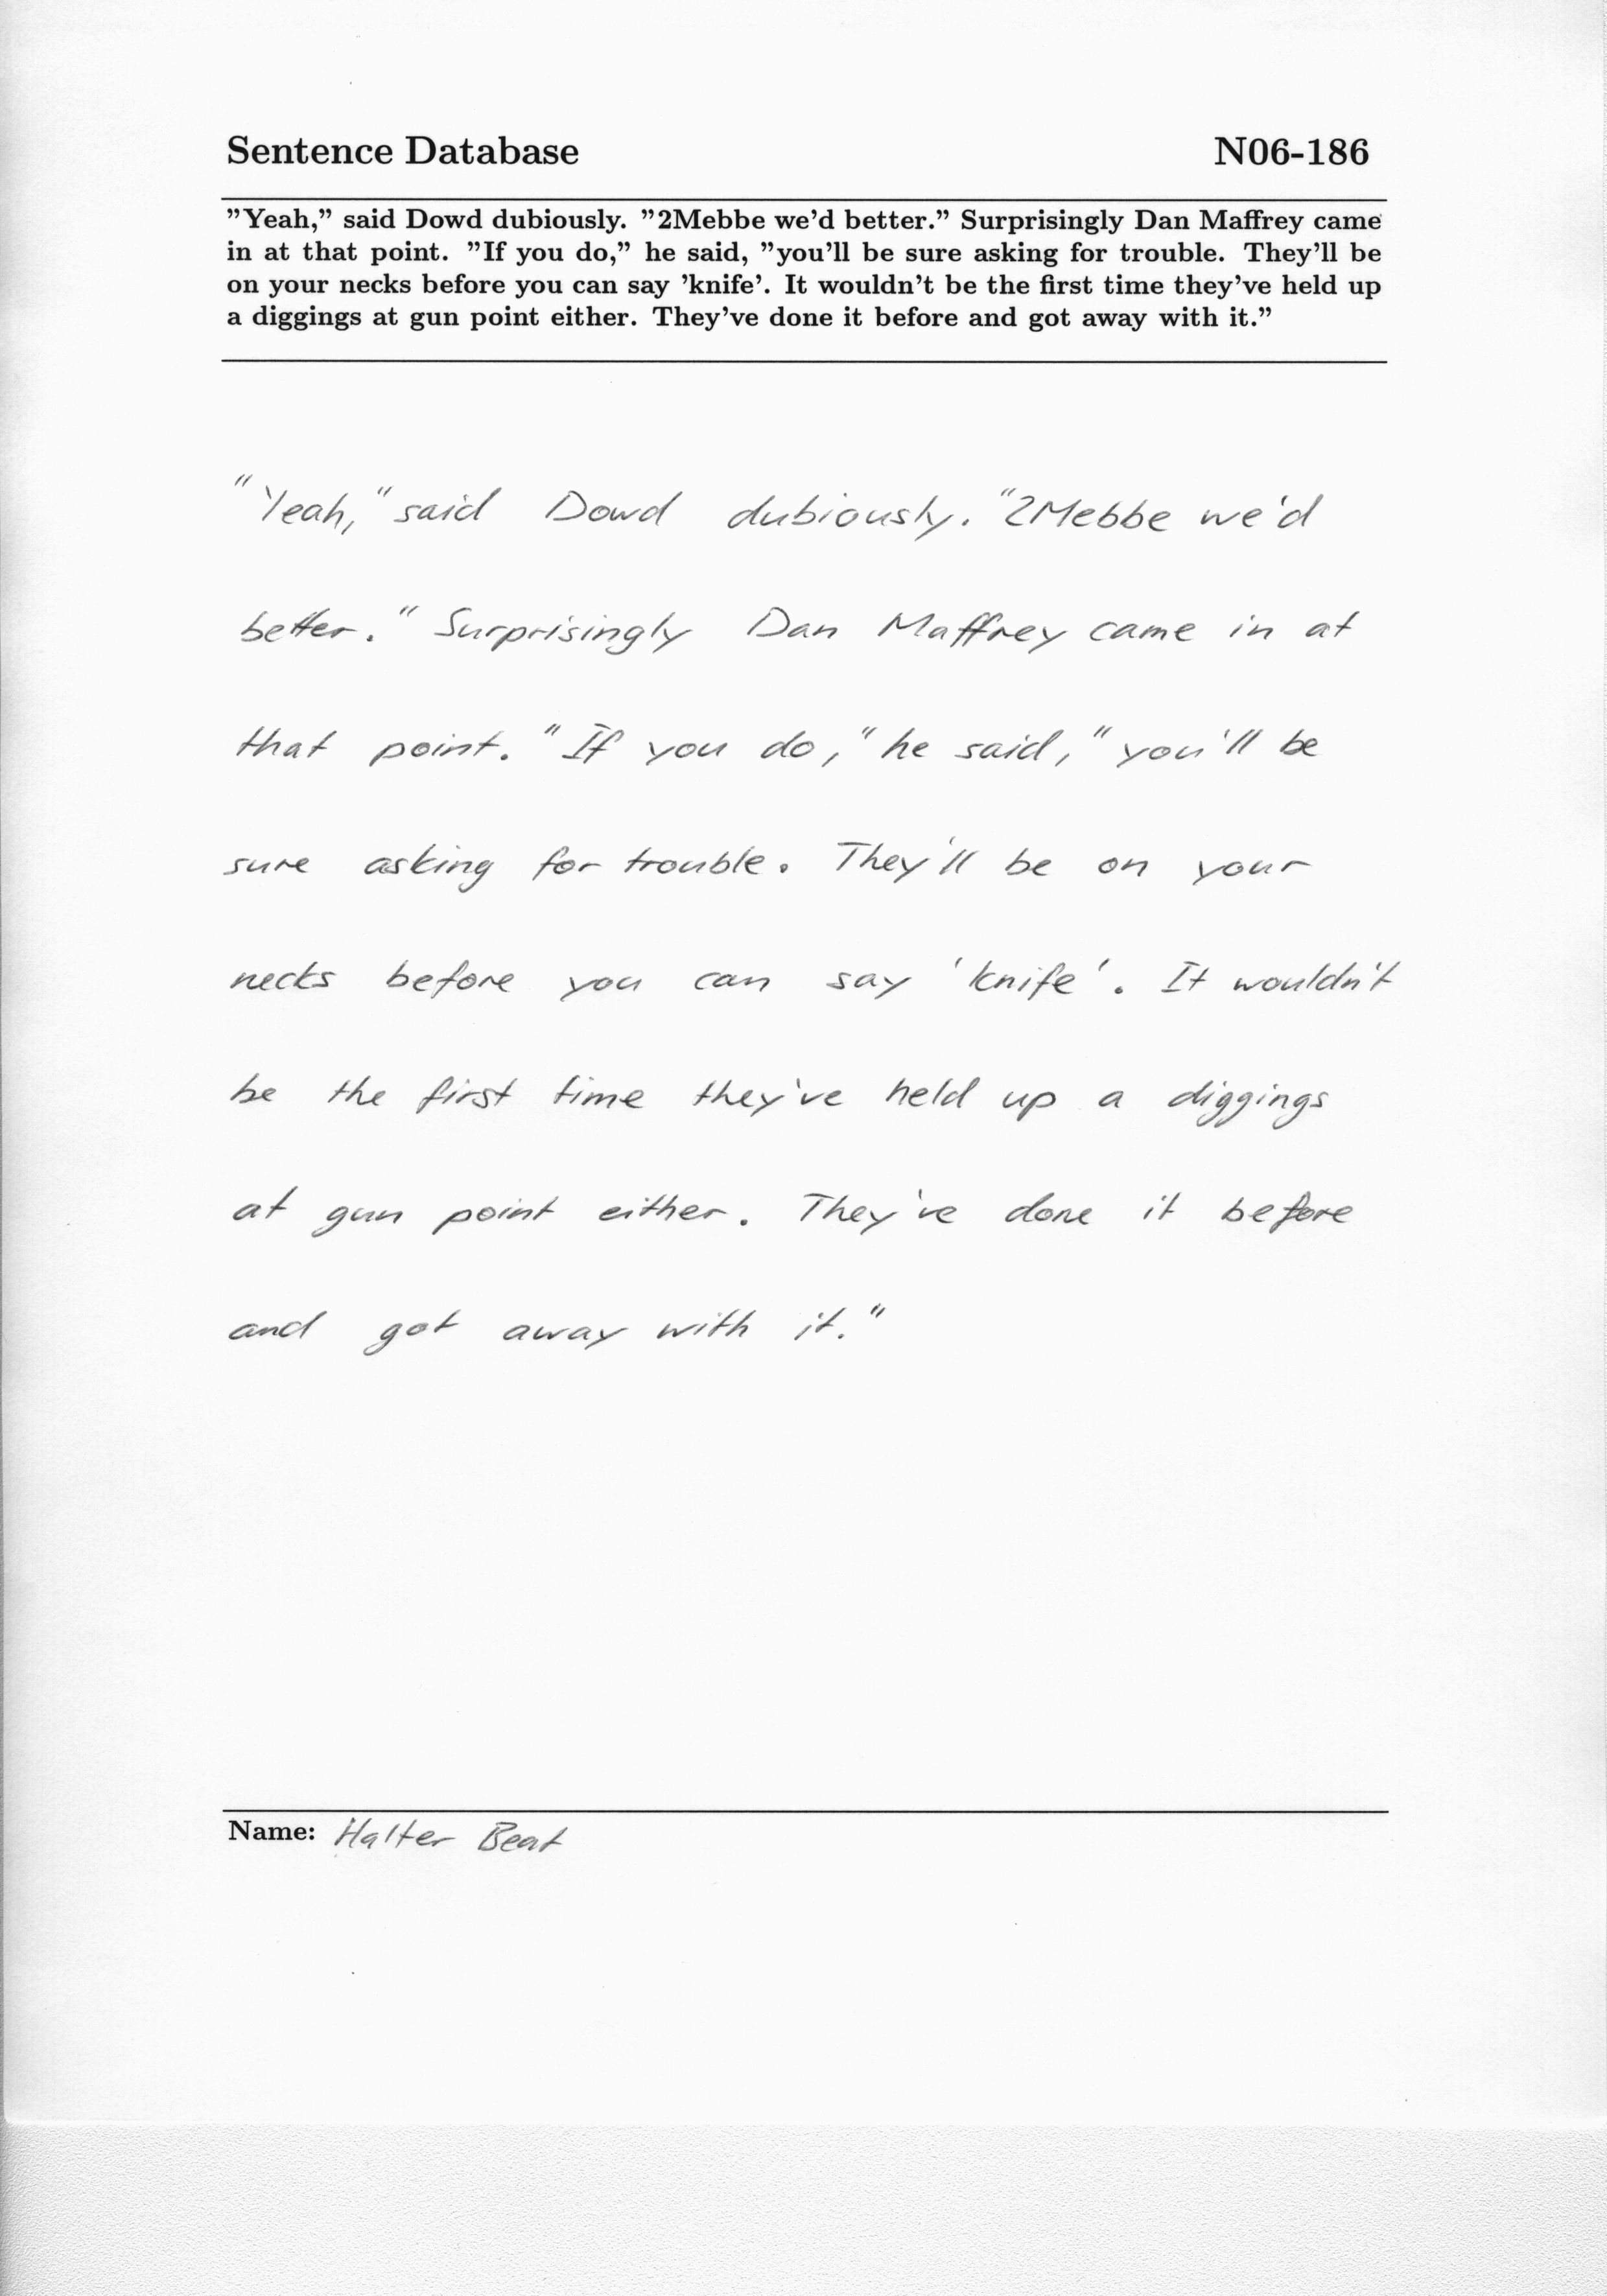 Sentence Database N06-186
”Yeah,” said Dowd dubiously. ”2Mebbe we’d better.” Surprisingly Dan Maffrey came
in at that point. ”If you do,” he said, ”you’ll be sure asking for trouble. They’ll be
on your necks before you can say ’knife’. It wouldn’t be the first time they’ve held up
a diggings at gun point either. They’ve done it before and got away with it.”
"Yeah," said Dowd dubiously. "2Mebbe we'd
better." Surprisingly Dan Maffrey came in at
that point. "If you do," he said, "you'll be
sure asking for trouble. They'll be on your
necks before you can say 'knife'. It wouldn't
be the first time they've held up a diggings
at gun point either. They've done it before
and got away with it."
Name: Halter Beat